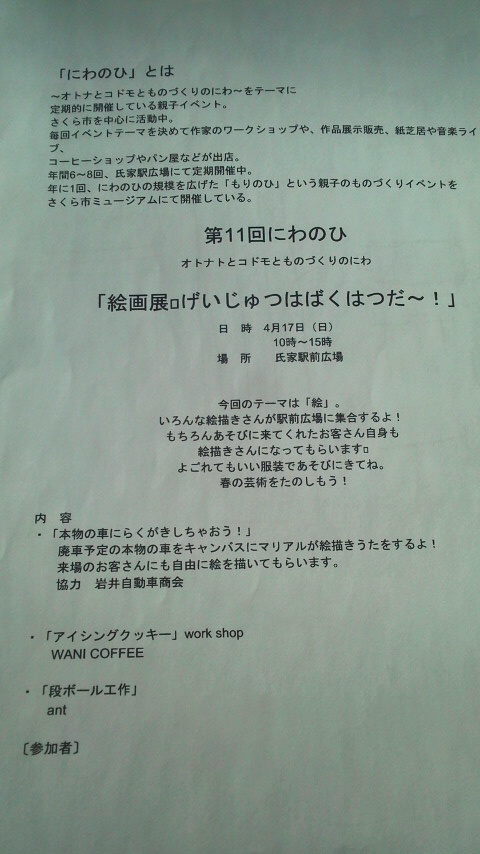 「にわのひ」とは
～オトナとコドモとものづくりのにわ～をテーマに
定期的に開催している親子イベント。
さくら市を中心に活動中。
毎回イベントテーマを決めて作家のワークショップや、作品展示販売、紙芝居や音楽ライ
ブ、
コーヒーショップやパン屋などが出店。
年間6～8回、氏家駅広場にて定期開催中。
年に1回、にわのひの規模を広げた「もりのひ」という親子のものづくりイベントを
さくら市ミュージアムにて開催している。
第11回にわのひ
オトナトとコドモとものづくりのにわ
「絵画展□げいじゅつはばくはつだ～！」
日　時　4月17日（日）
10時～15時
場　所　　氏家駅前広場
今回のテーマは「絵」。
いろんな絵描きさんが駅前広場に集合するよ！
もちろんあそびに来てくれたお客さん自身も
絵描きさんになってもらいます□
よごれてもいい服装であそびにきてね。
春の芸術をたのしもう！
内　容
・「本物の車にらくがきしちゃおう！」
廃車予定の本物の車をキャンバスにマリアルが絵描きうたをするよ！
来場のお客さんにも自由に絵を描いてもらいます。
協力　岩井自動車商会
・「アイシングクッキー」work shop
WANI COFFEE
・「段ボール工作」
ant
〔参加者〕